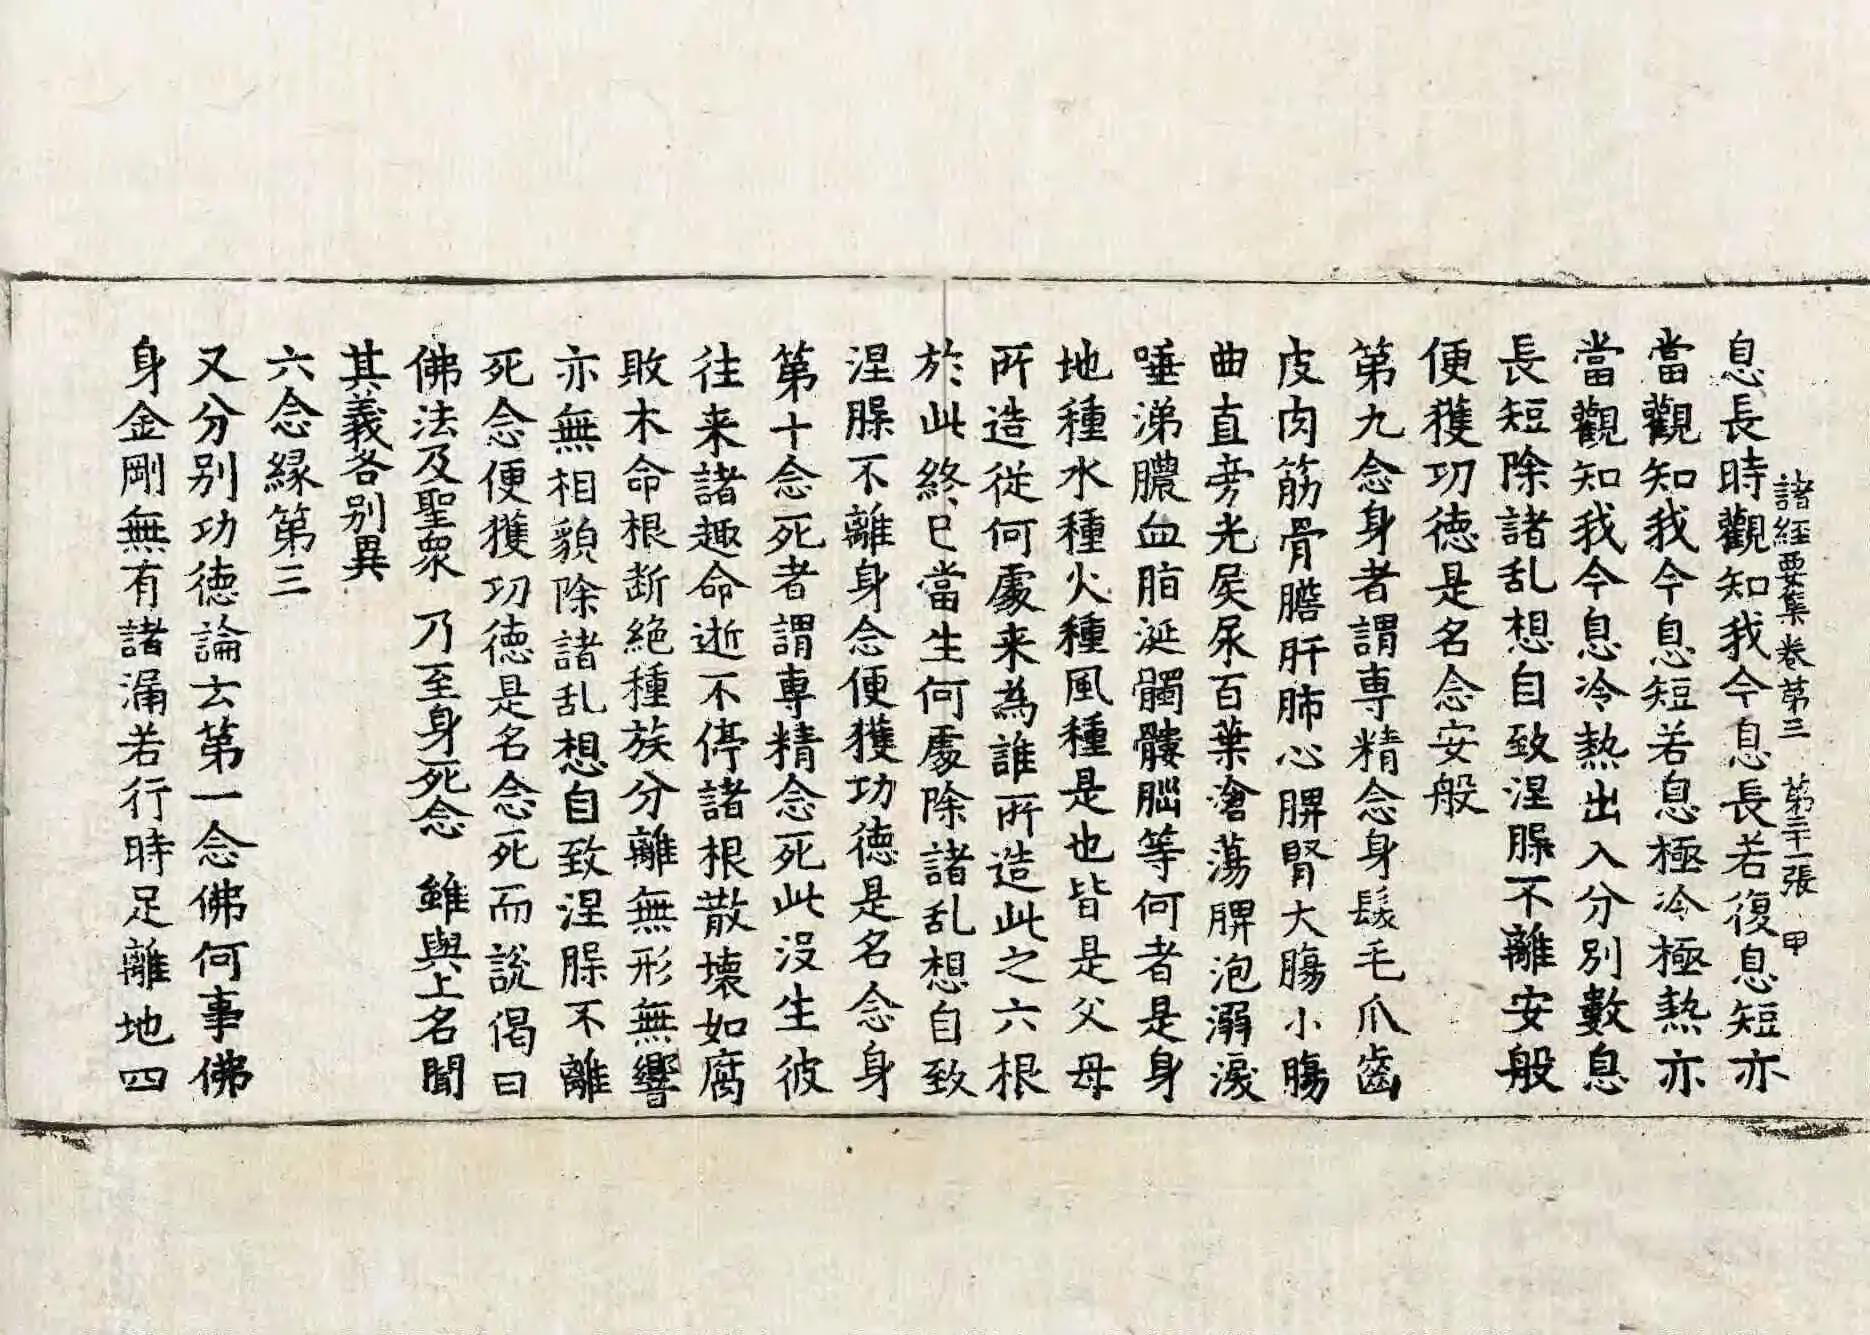 息長時觀知我今息長若復息短亦
諸經要集卷第三　第二十一張　甲
當觀知我今息短若息極冷極熱亦
當觀知我今息冷熱出入分別數息
長短除諸乱想自致涅槃不離安般
便獲功德是名念安般
第九念身者謂専精念身髮毛爪齒
皮肉筋骨膽肝肺心脾腎大腸小腸
曲直旁光屎尿百葉滄蕩脾泡溺淚
唾涕膿血脂涎髑髏腦等何者是身
地種水種火種風種是也皆是父母
所造從何處来為誰所造此之六根
於此終已當生何處除諸乱想自致
涅槃不離身念便獲功德是名念身
第十念死者謂専精念死此沒生彼
往来諸趣命逝不停諸根散壞如腐
敗木命根断絕種族分離無形無響
亦無相貌除諸乱想自致涅槃不離
死念便獲功德是名念死而說偈曰
佛法及聖衆　乃至身死念　雖與上名聞
其義各別異
六念緣第三
又分別功德論云第一念佛何事佛
身金剛無有諸漏若行時足離地四